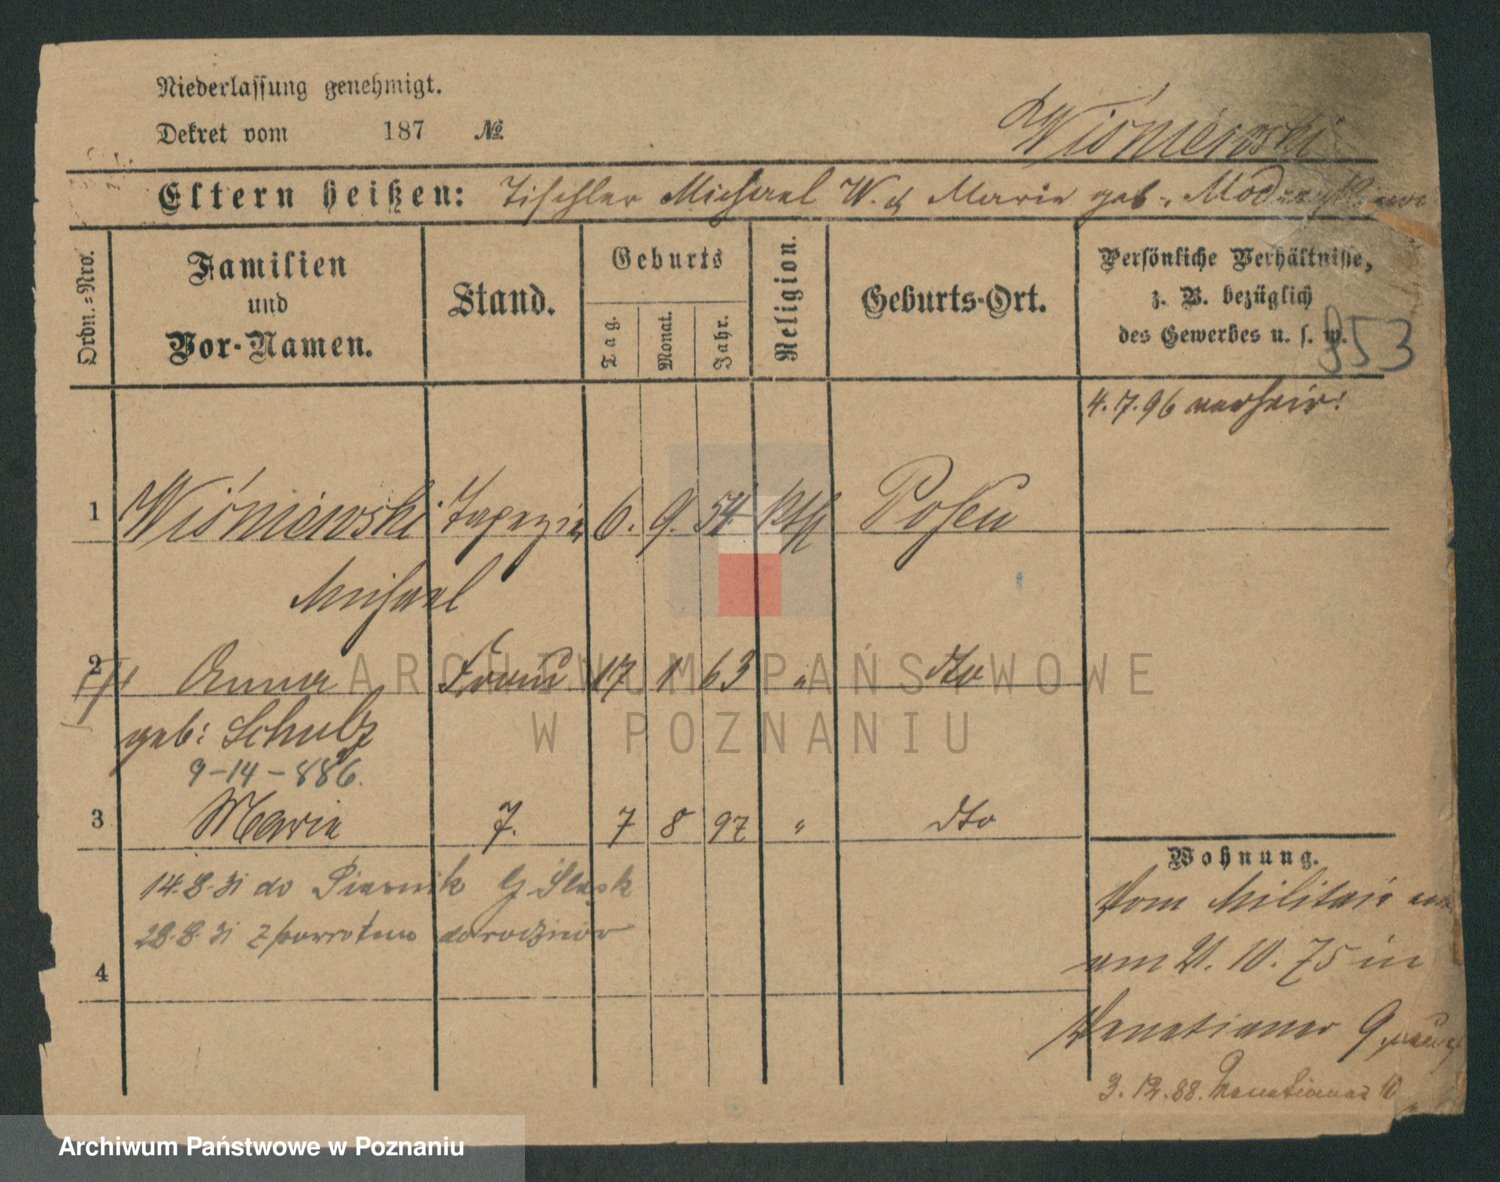 Niederlassung genehmigt.
Dekret vom 187 №
Wiśniewski
Eltern heißen: Tischler Michael W. & Marie geb.
Ordn.-Nro.
Familien
und
Vor-Namen.
Stand.
Geburts
Tag.
Monat.
Jahr.
Religion.
Geburts-Ort.
Persönliche Verhältnisse,
z. B. bezüglich
des Gewerbes u. s. w.
853
4.7.96 verheir:
1 Wiśniewski Tapezier 6. 9. 54 kth Posen
Michael
2 Anna Frau 17 1 63 " dto
geb: Schulz
9-14-886.
3 Marie T. 7 8 97 " dto
14.8.31 do G Śląsk
28.8.31 z powrotem do rodziców
4
Wohnung.
Vom Militair
am 21.10.75 in
Venetianer
3.12.88. Venetianer 10
ARCHIWUM PAŃSTWOWE
W POZNANIU
Archiwum Państwowe w Poznaniu